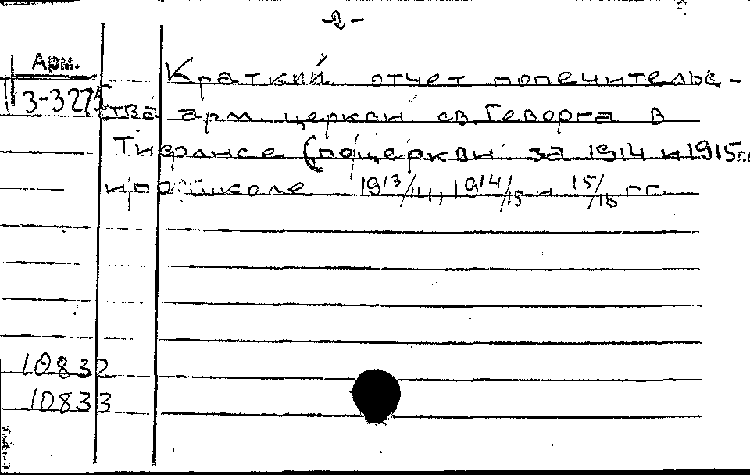 -2-
Арм.
3-3275
Краткий отчет попечительс-
тва арм. церкви св. Геворга в
Тифлисе (по церкви за 1914 и 1915 г.г.
и по школе 1913/14, 1914/15 и 15/16 гг.
10832
10833